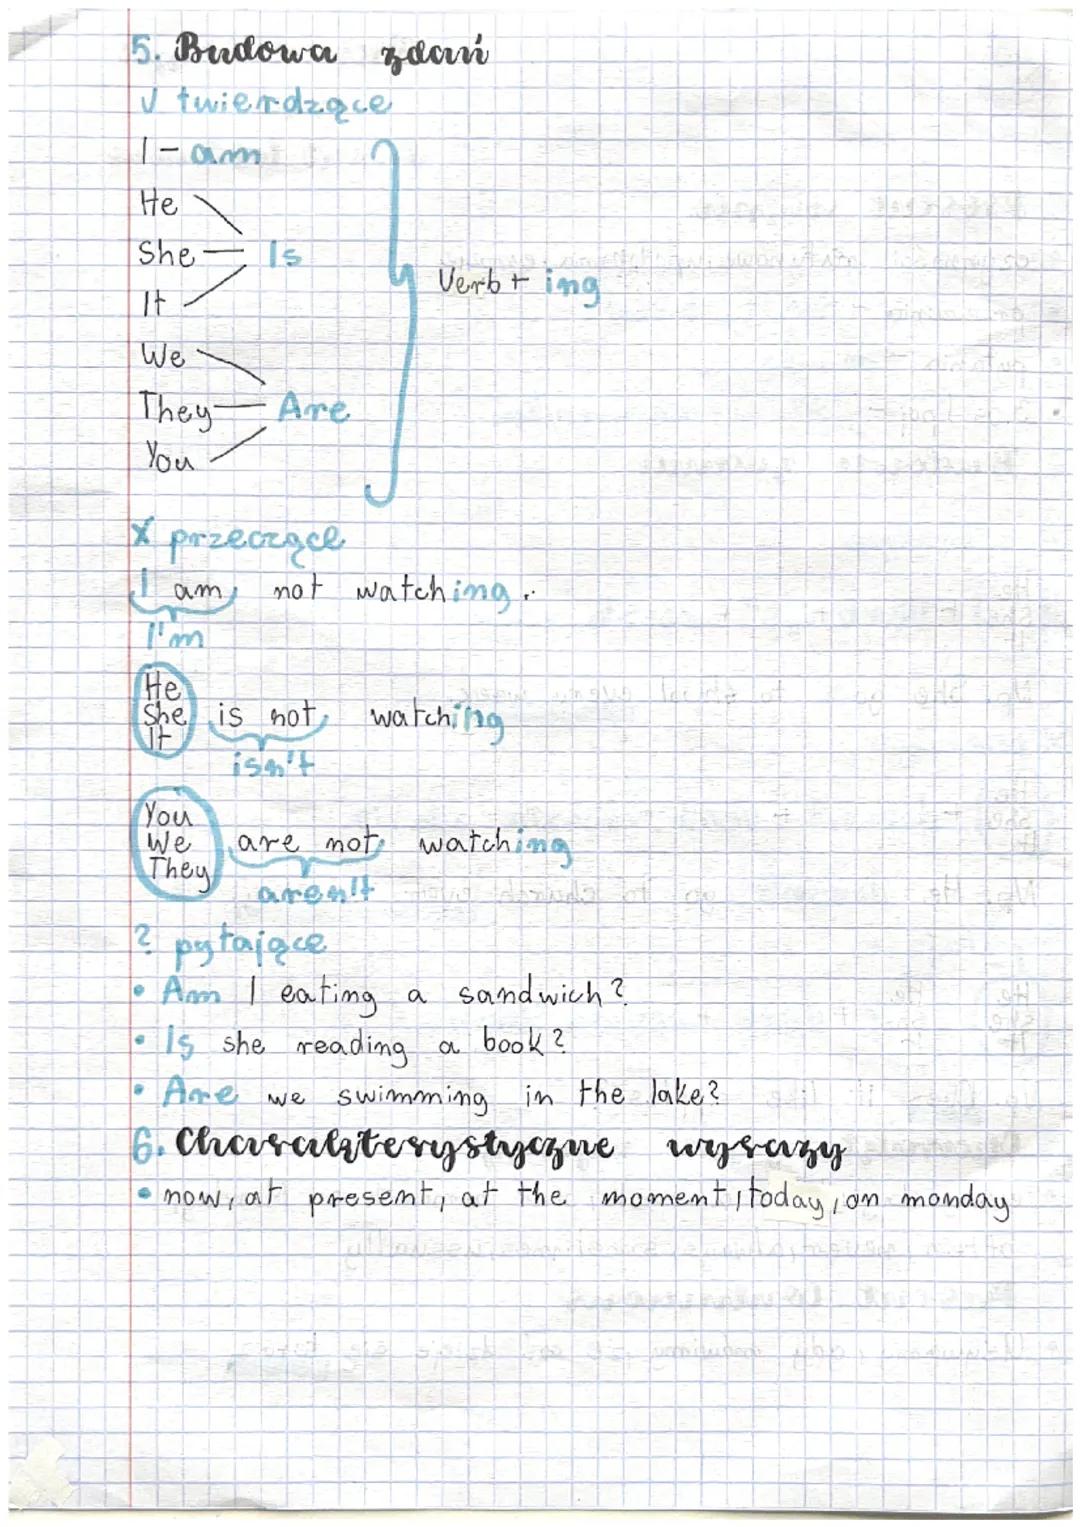 5. Budowa zdań
√ twierdzące
I - am
He
She Is
It
Verb + ing
We
They Are
You
X przeczące
I am not watching.
I'm
He
She is not watching
It
isn't
You
We are not watching
They
aren't
? pytające
• Am I eating a sandwich?
• Is she reading a book?
• Are we swimming in the lake?
6. Charakterystyczne wyrazy
• now, at present, at the moment, today, on monday